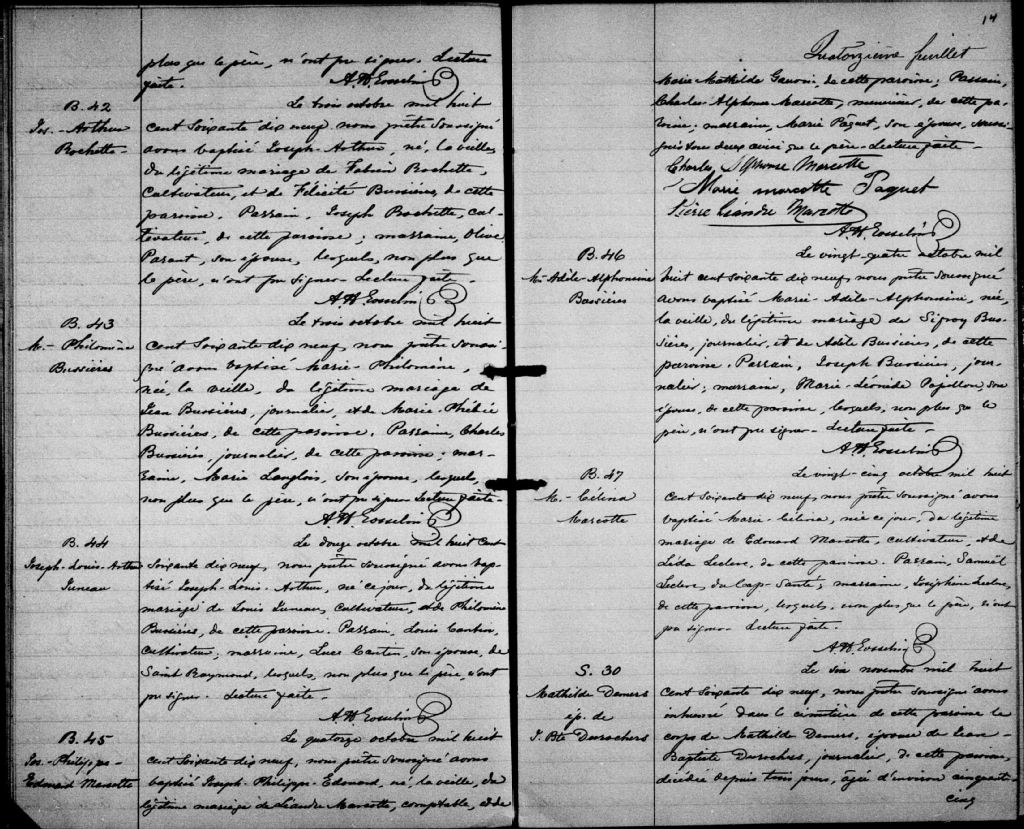 plus que le père, n'ont pu signer. Lecture
faite.
A. H. Gosselin
B. 42
Jos.-Arthur
Rochette-
Le trois octobre mil huit
cent soixante dix neuf nous prêtre soussigné
avons baptisé Joseph-Arthur, né, la veille
du légitime mariage de Fabien Rochette,
cultivateur, et de Félicité Bussières, de cette
paroisse. Parrain, Joseph Rochette, cul-
tivateur, de cette paroisse; marraine, Olive
Parant, son épouse, lesquels, non plus que
le père, n'ont pu signer- Lecture faite-
A. H. Gosselin
B. 43
M.- Philomène
Bussières
Le trois octobre mil huit
cent soixante dix neuf, nous prêtre soussi-
gné avons baptisé Marie-Philomène,
née, la veille, du légitime mariage de
Jean Bussières, journalier, et de Marie-Phébée
Bussières, de cette paroisse. Parrain, Charles
Bussières, journalier, de cette paroisse; mar-
raine, Marie Langlois, son épouse, lesquels,
non plus que le père, n'ont pu signer. Lecture faite-
A. H. Gosselin
B. 44
Joseph-Louis-Arthur
Juneau
Le douze octobre mil huit cent
soixante dix neuf, nous prêtre soussigné avons bap-
tisé Joseph-Louis-Arthur, né ce jour, du légitime
mariage de Louis Juneau, cultivateur, et de Philomène
Bussières, de cette paroisse. Parrain, Louis Cantin,
cultivateur; marraine, Luce Cantin, son épouse, de
Saint Raymond, lesquels, non plus que le père, n'ont
pu signer. Lecture faite-
A. H. Gosselin
B. 45
Jos-Philippe-
Edouard Marcotte
Le quatorze octobre mil huit
cent soixante dix neuf, nous prêtre soussigné avons
baptisé Joseph-Philippe-Edouard, né, la veille, du
légitime mariage de Léandre Marcotte, comptable, et de
14
Quatorzième feuillet
Marie-Mathilde Gauvin, de cette paroisse; Parrain,
Charles-Alphonse Marcotte, meunier, de cette pa-
roisse; marraine, Marie Pâquet, son épouse, sous-
signés tous deux ainsi que le père-Lecture faite-
Charles, Alphonse Marcotte
Marie marcotte Paquet
Pierre Léandre Marcotte
A. H. Gosselin
B. 46
M.-Adèle-Alphonsine
Bussières
Le vingt-quatre octobre mil
huit cent soixante dix neuf, nous prêtre soussigné
avons baptisé Marie-Adèle-Alphonsine, née,
la veille, du légitime mariage de Sifroy Bus-
sières, journalier, et de Adèle Bussières, de cette
paroisse. Parrain, Joseph Bussières, jour-
nalier; marraine, Marie-Léonide Papillon, son
épouse, de cette paroisse, lesquels, non plus que le
père, n'ont pu signer- Lecture faite-
A. H. Gosselin
B. 47
M.- Célina
Marcotte
Le vingt-cinq octobre mil huit
cent soixante dix neuf, nous prêtre soussigné avons
baptisé Marie-Célina, née ce jour, du légitime
mariage de Edouard Marcotte, cultivateur, et de
Léda Leclerc, de cette paroisse. Parrain, Samuël
Leclerc, du Cap-Santé; marraine, Joséphine Leclerc,
de cette paroisse, lesquels, non plus que le père, n'ont
pu signer- Lecture faite.
A. H. Gosselin
S. 30
Mathilde Demers
ép. de
J. Bte Desrochers
Le six novembre mil huit
cent soixante dix neuf, nous prêtre soussigné avons
inhumé dans le cimetière de cette paroisse le
corps de Mathilde Demers, épouse de Jean-
Baptiste Desrochers, journalier, de cette paroisse,
décédée depuis trois jours, âgée d'environ cinquante-
cinq